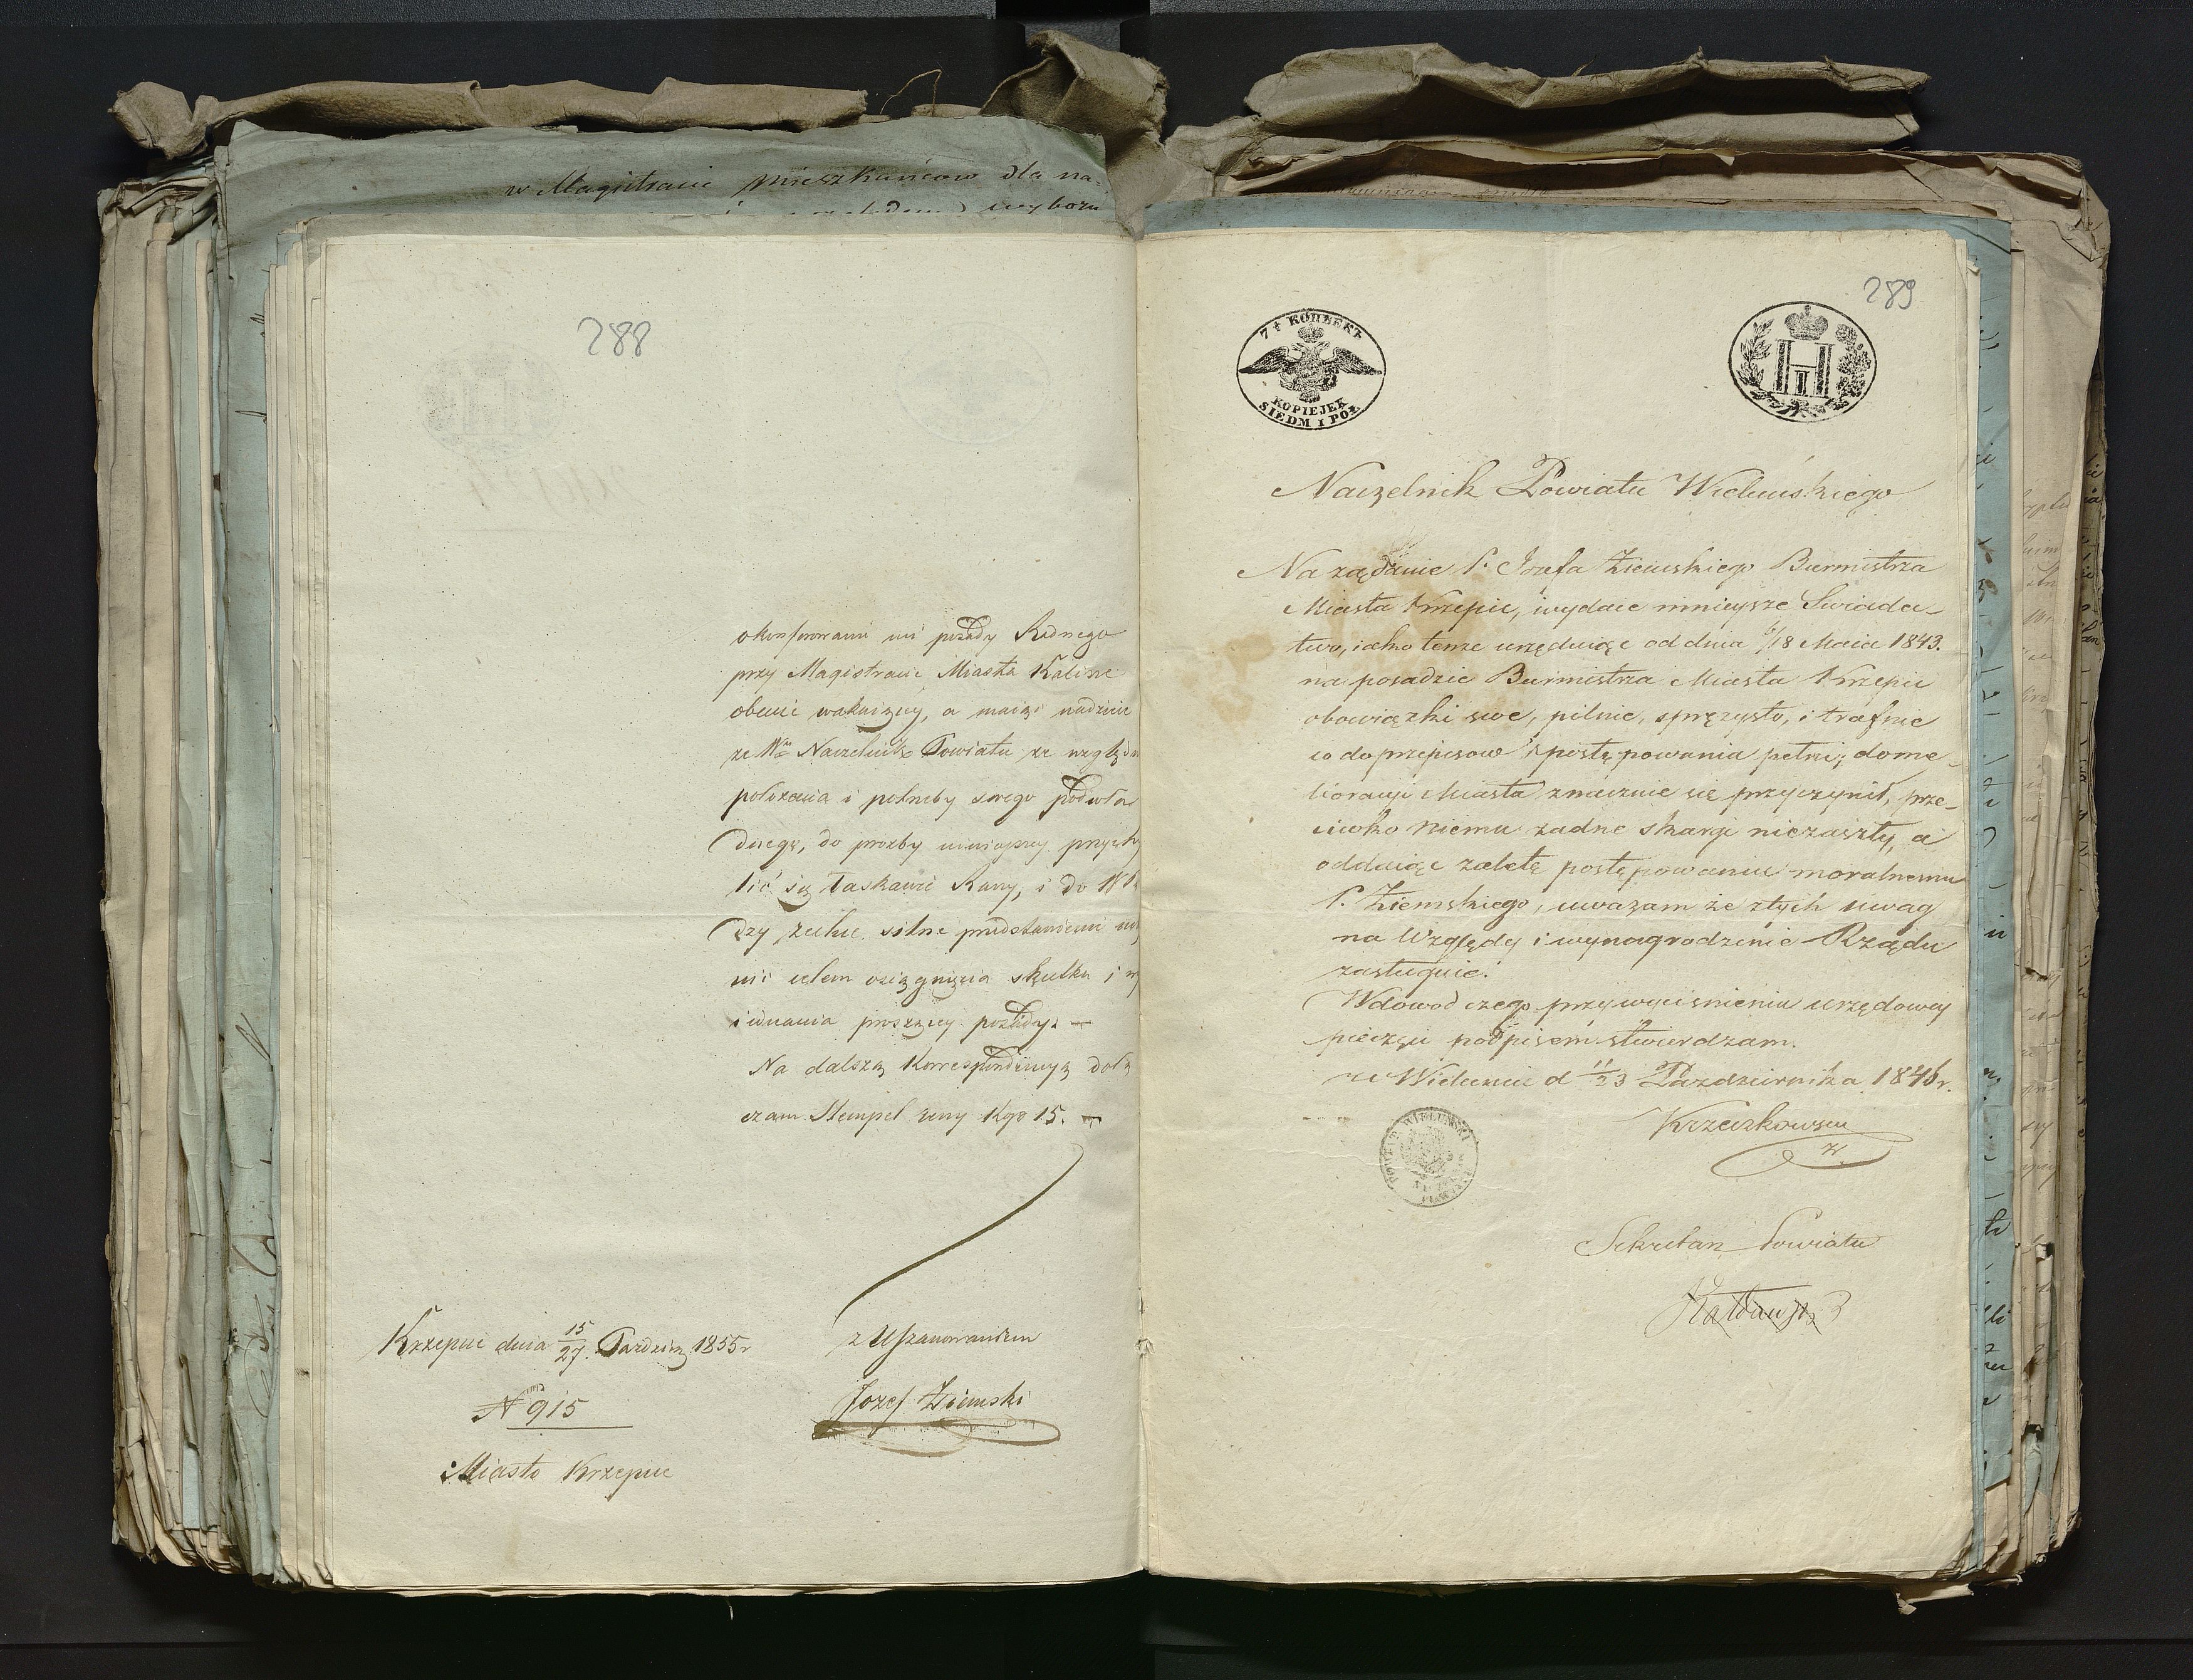 w Magistracie mieszkańcow dla na=
wyboru
288
okonferowanie mi posady Radnego
przy Magistracie Miasta Kalisza
obecnie wakuiący, a maiąc nadzieie
ze Wny Naczelnik Powiatu ze względu
położenia i potrzeby swego podwła
dnego, do prozby ninieyszey przychy
lić się łaskawie Raczy, i do Wła
dzy zechce silne przedstawienie
nić celem osiągnięcia skutku i
iednania proszący posady. —
Na dalszą Korrespondencyą dołą
czam Stempel ceny Kop 15. —
Krzepice dnia 15/27 Pazdzier 1855 r
z Uszanowaniem
Jozef Ziemski
N 915
Miasto Krzepice
289
7½ КОПѢЕКЪ
KOPIEJEK
SIEDM I PÓŁ
H I
Naczelnik Powiatu Wieluńskiego
Na żądanie P. Jozefa Ziemskiego Burmistrza
Miasta Krzepic, wydaie ninieysze Swiadec-
two, iako tenże urzęduiąc od dnia 6/18 Maia 1843.
na posadzie Burmistrza Miasta Krzepic
obowiązki swe, pilnie, sprężysto, i trafnie
co do przepisow i postępowania pełni; do me-
lioracyi Miasta znacznie się przyczynił, prze-
ciwko niemu żadne skargi niezaszły, a
oddaiąc zaletę postępowaniu moralnemu
P. Ziemskiego, uważam że z tych uwag
na Względy i wynagrodzenie Rządu
zasługuie.
W dowod czego przy wyciśnieniu urzędowey
pieczęci podpisem stwierdzam.
w Wieluniu d 11/23 Pazdziernika 1846 r.
POWIAT WIELUNSKI
Sekretarz Powiatu